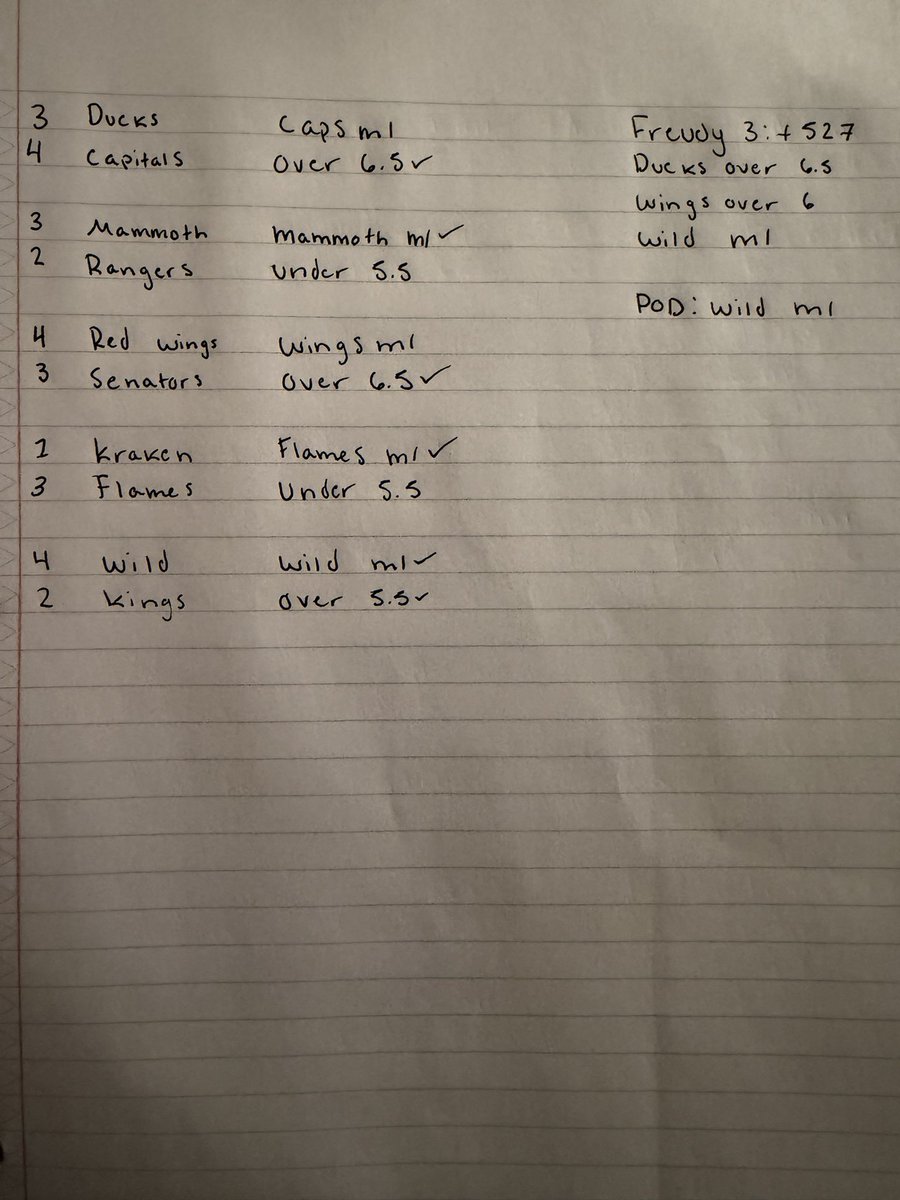 3 Ducks Caps ml
4 Capitals Over 6.5 ✓
3 Mammoth Mammoth ml ✓
2 Rangers under 5.5
4 Red wings Wings ml
3 Senators Over 6.5 ✓
2 Kraken Flames ml ✓
3 Flames Under 5.5
4 Wild Wild ml ✓
2 Kings Over 5.5 ✓
Freudy 3: + 527
Ducks over 6.5
Wings over 6
Wild ml
POD: Wild ml